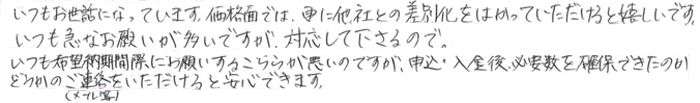 いつもお世話になっています。価格面では、更に他社との差別化をはかっていただけると嬉しいです。
いつも急なお願いが多いですが、対応して下さるので。
いつも希望納期間際にお願いするこちらが悪いのですが、申込・入金後、必要数を確保できたのか
どうかのご連絡をいただけると安心できます。
(メール等)